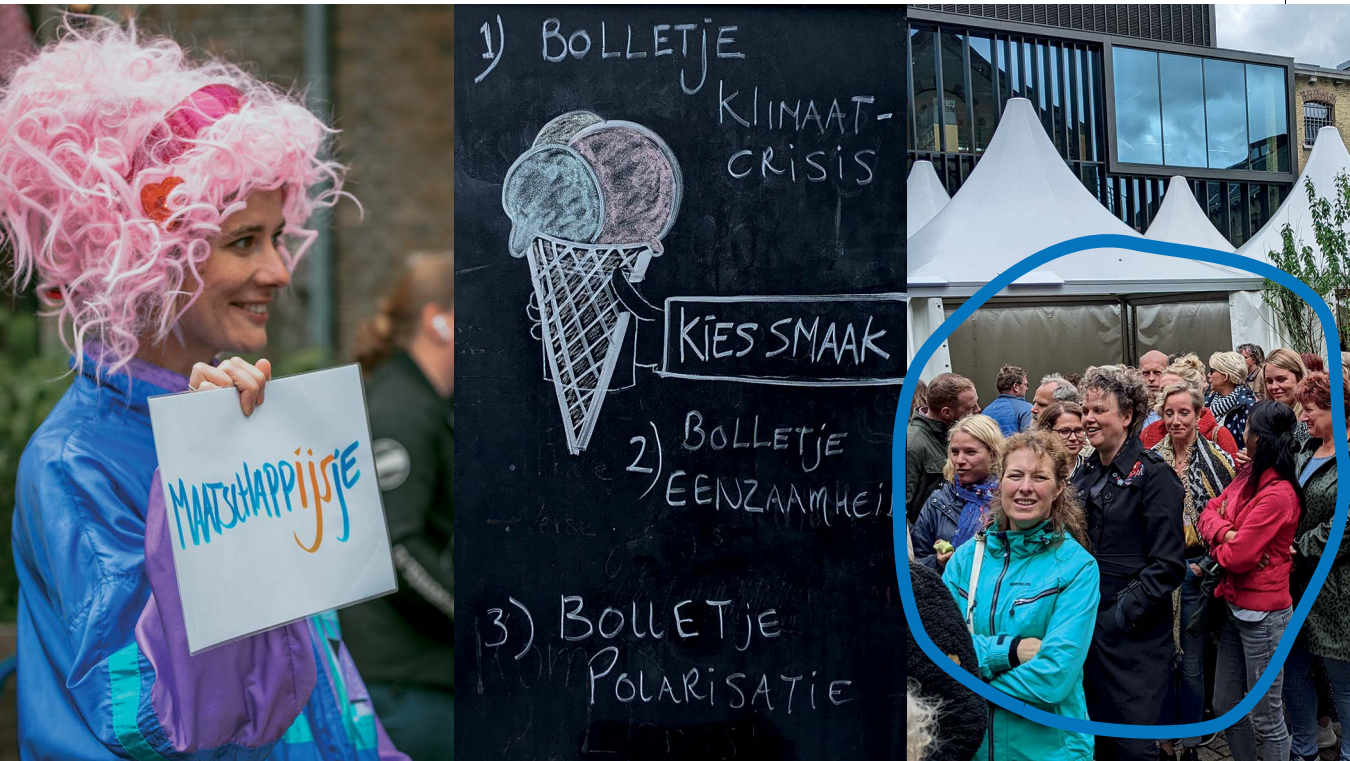 MAATSCHAPPijsjE
1) BOLLETjE
KLIMAAT-
CRISIS
KiES SMAAK
2) BOLLETjE
EENZAAMHEi
3) BOllETjE
POLARiSATiE